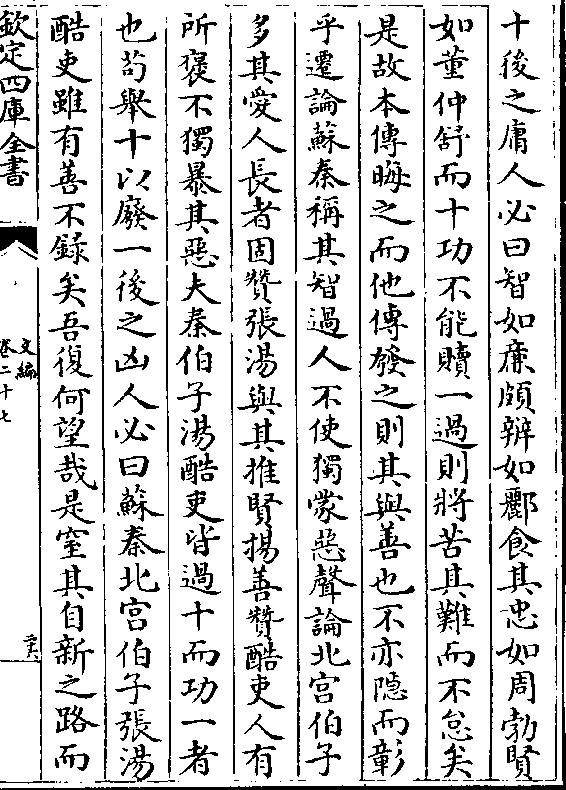 十後之庸人必曰智如㢘頗辨如酈食其忠如周勃賢
如董仲舒而十功不能贖一過則將苦其難而不怠矣
是故本傳晦之而他傳發之則其與善也不亦隱而彰
乎遷論蘇秦稱其智過人不使獨蒙惡聲論北宮伯子
多其愛人長者固贊張湯與其推賢揚善贊酷吏人有
所褒不獨暴其惡夫秦伯子湯酷吏皆過十而功一者
也苟舉十以廢一後之凶人必曰蘇秦北宮伯子張湯
酷吏雖有善不錄矣吾復何望哉是窒其自新之路而
欽定四庫全書
文編
卷二十七